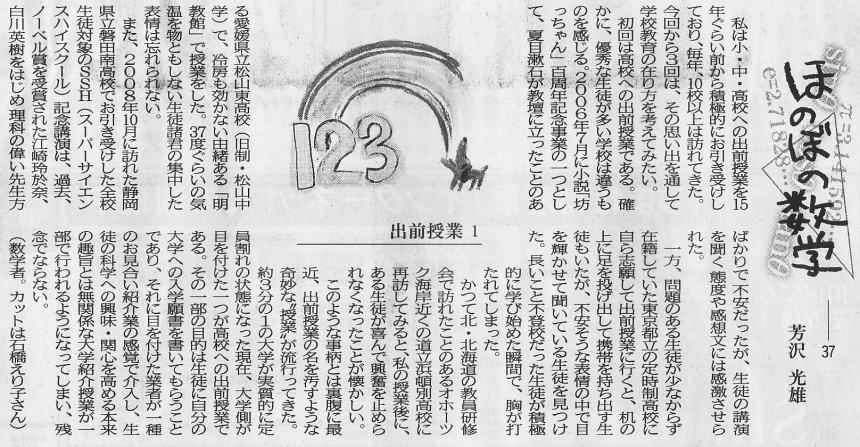 ほのぼの数学
π=3.141592
e=2.71828…
37
芳沢 光雄
　私は小・中・高校への出前授業を15
年ぐらい前から積極的にお引き受けし
ており、毎年、10校以上は訪れてきた。
今回から3回は、その思い出を通して
学校教育の在り方を考えてみたい。
　初回は高校への出前授業である。確
かに、優秀な生徒が多い学校は違うも
のを感じる。2006年7月に小説「坊
っちゃん」百周年記念事業の一つとし
て、夏目漱石が教壇に立ったことのあ
る愛媛県立松山東高校（旧制・松山中
学）で、冷房も効かない由緒ある「明
教館」で授業をした。37度ぐらいの気
温を物ともしない生徒諸君の集中した
表情は忘れられない。
　また、2008年10月に訪れた静岡
県立磐田南高校でお引き受けした全校
生徒対象のSSH（スーパーサイエン
スハイスクール）記念講演は、過去、
ノーベル賞を受賞された江崎玲於奈、
白川英樹をはじめ理科の偉い先生方
ばかりで不安だったが、生徒の講演
を聞く態度や感想文には感激させら
れた。
　一方、問題のある生徒が少なからず
在籍していた東京都立の定時制高校に
自ら志願して出前授業に行くと、机の
上に足を投げ出して携帯を持ち出す生
徒もいたが、不安そうな表情の中で目
を輝かせて聞いている生徒を見つけ
た。長いこと不登校だった生徒が積極
的に学び始めた瞬間で、胸が打
たれてしまった。
　かつて北・北海道の教員研修
会で訪れたことのあるオホーツ
ク海岸近くの道立浜頓別高校に
再訪してみると、私の授業後に、
ある生徒が喜んで興奮を止めら
れなくなったことが懐かしい。
　このような事柄とは裏腹に最
近、出前授業の名を汚すような
奇妙な「授業」が流行ってきた。
　約3分の1の大学が実質的に定
員割れの状態になった現在、大学側が
目を付けた一つが高校への出前授業で
ある。その一部の目的は生徒に自分の
大学への入学願書を書いてもらうこと
であり、それに目を付けた業者が一種
のお見合い紹介業の感覚で介入し、生
徒の科学への興味・関心を高める本来
の趣旨とは無関係な大学紹介授業が一
部で行われるようになってしまい、残
念でならない。
（数学者。カットは石橋えり子さん）
123
出前授業 1